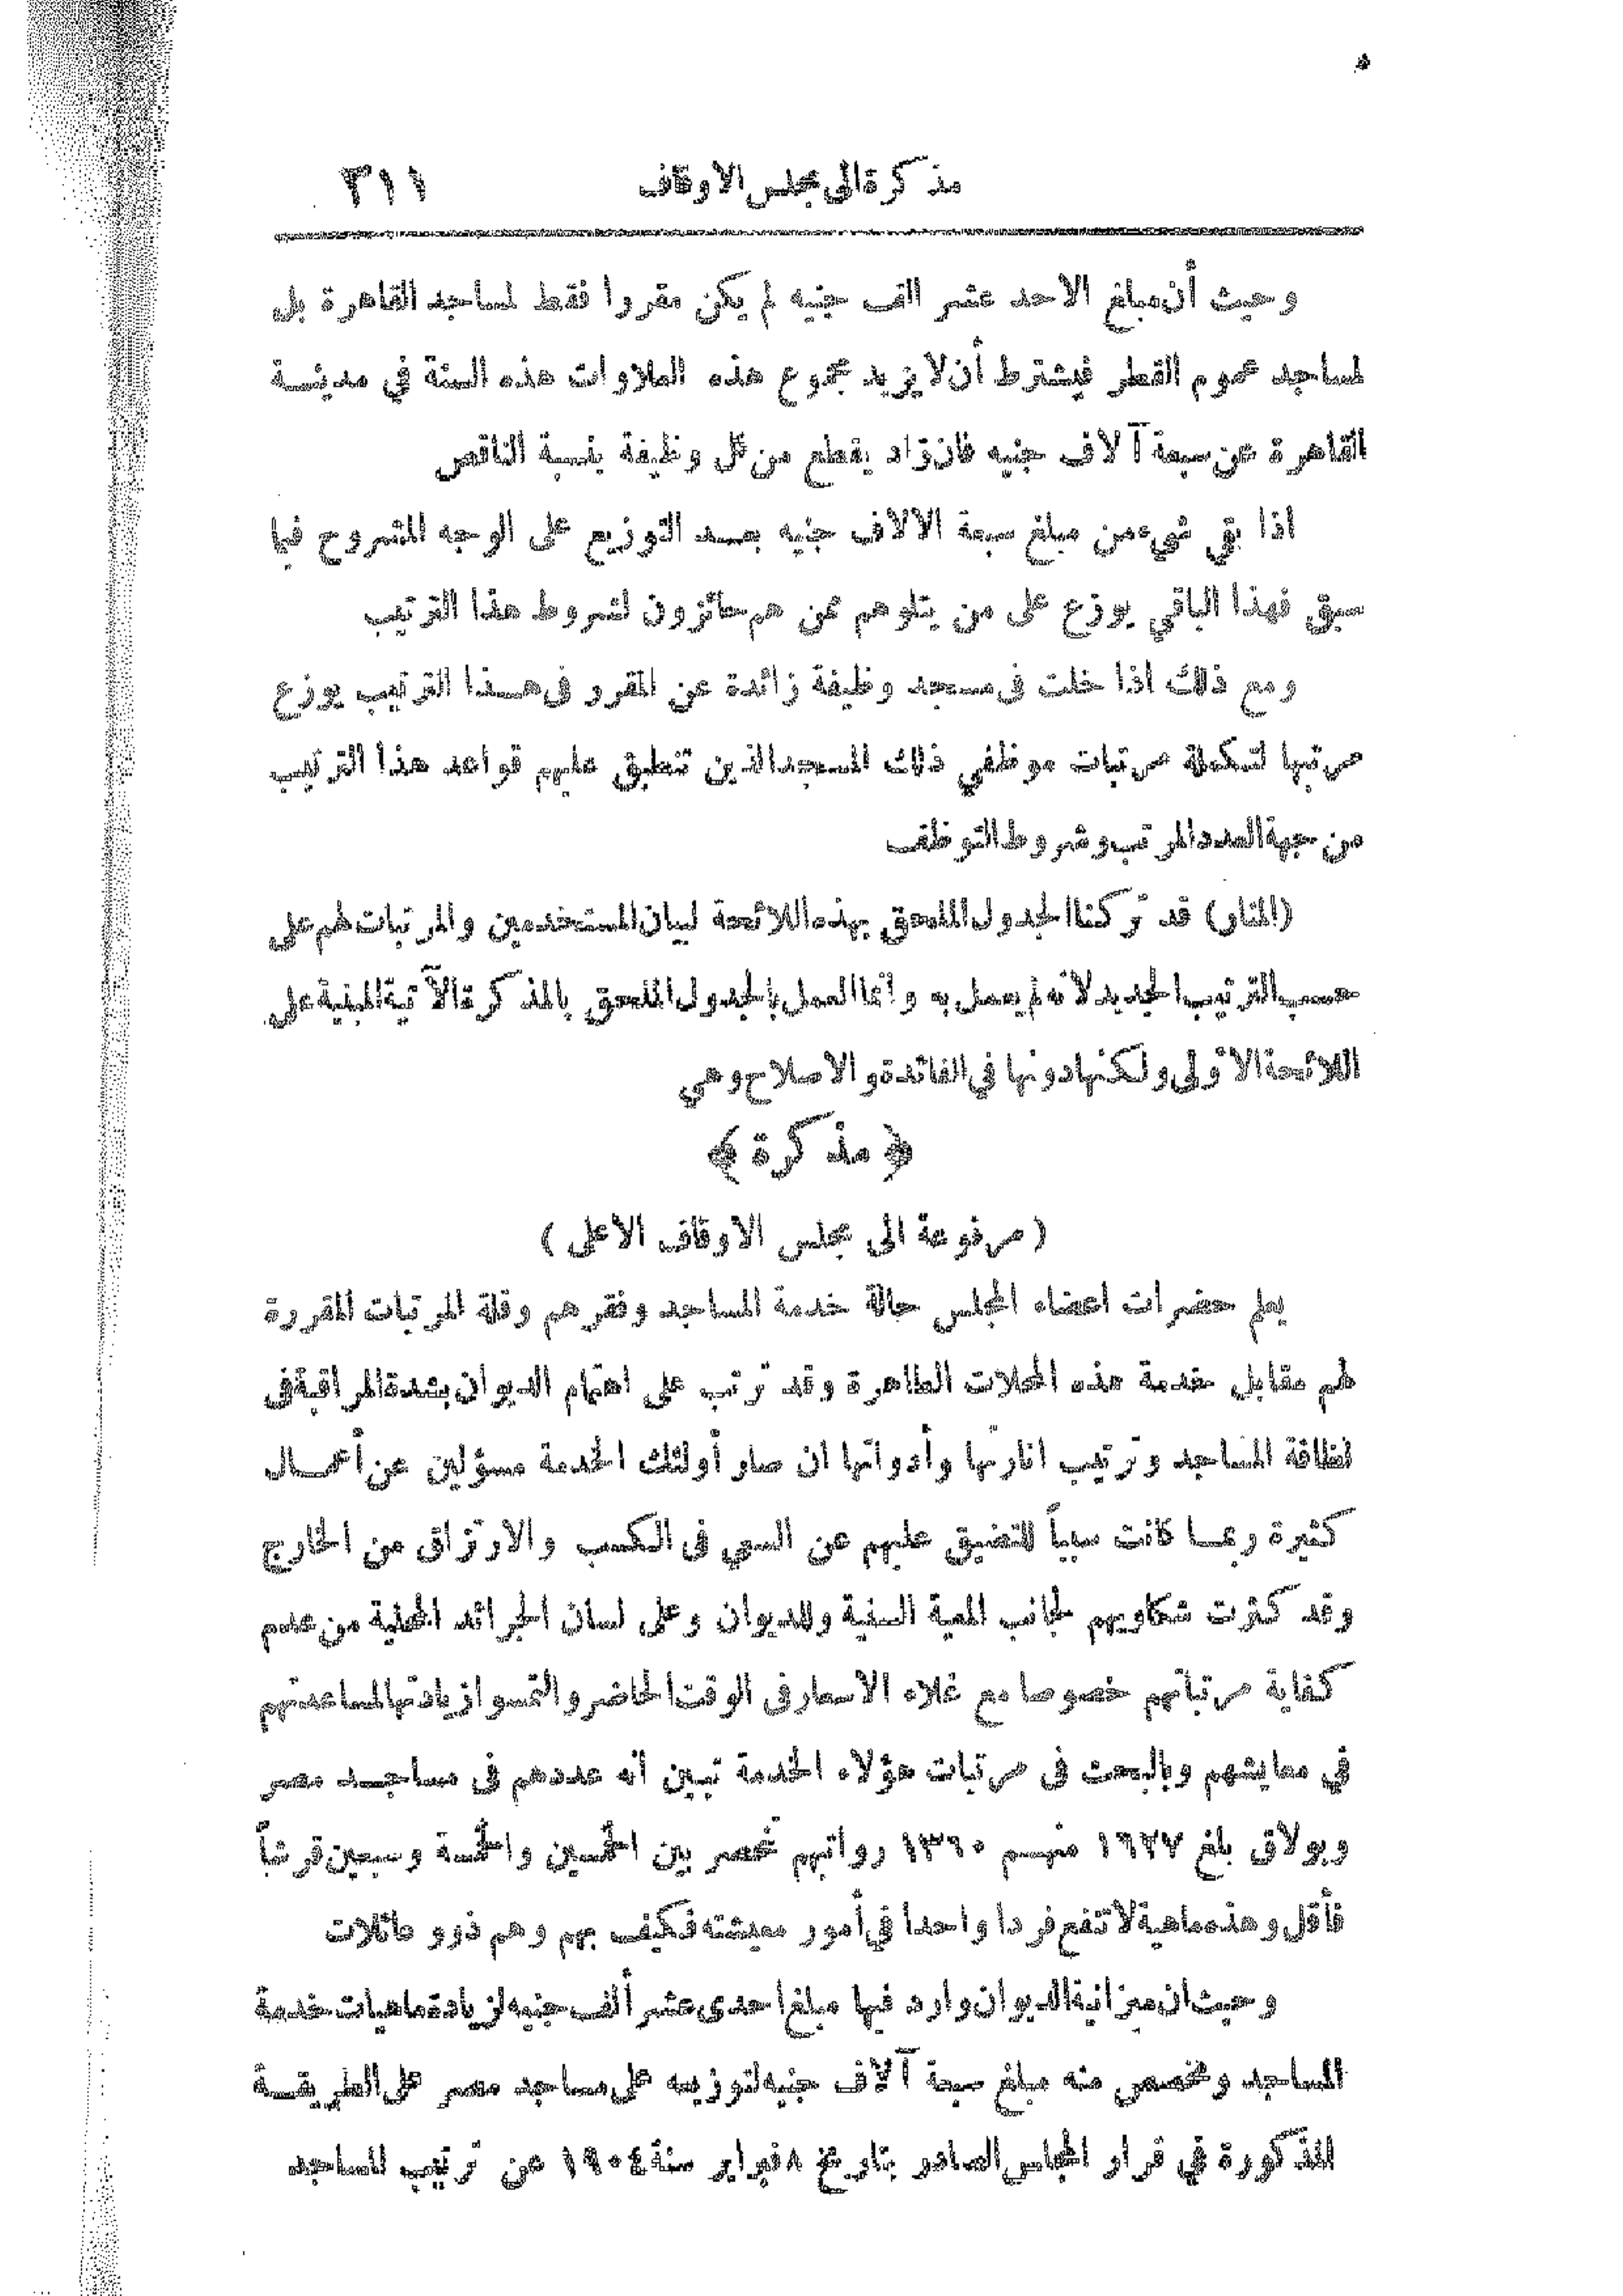 مذكرة الى مجلس الاوقاف ٣١١
وحيث أن مبلغ الاحد عشر الف جنيه لم يكن مقررا فقط لمساجد القاهرة بل
لمساجد عموم القطر فيشترط أن لا يزيد مجموع هذه العلاوات هذه السنة في مدينة
القاهرة عن سبعة آلاف جنيه فان زاد يقطع من كل وظيفة بنسبة الناقص
اذا بقي شيء من مبلغ سبعة الالاف جنيه بعد التوزيع على الوجه المشروح فيما
سبق فهذا الباقي يوزع على من يتلوهم ممن هم حائزون لشروط هذا الترتيب
ومع ذلك اذا خلت في مسجد وظيفة زائدة عن المقرر في هذا الترتيب يوزع
مرتبها لتكملة مرتبات موظفي ذلك المسجد الذين تنطبق عليهم قواعد هذا الترتيب
من جهة العدد المرتب وشروط التوظف
(المنار) قد تركنا الجدول الملحق بهذه اللائحة لبيان المستخدمين والمرتبات لهم على
حسب الترتيب الجديد لانه لم يعمل به وانما العمل بالجدول الملحق بالمذكرة الآتية المبنية على
اللائحة الاولى ولكنها دونها في الفائدة والاصلاح وهي
﴿ مذكرة ﴾
( مرفوعة الى مجلس الاوقاف الاعلى )
يعلم حضرات اعضاء المجلس حالة خدمة المساجد وفقرهم وقلة المرتبات المقررة
لهم مقابل خدمة هذه المحلات الطاهرة وقد ترتب على اهتمام الديوان بشدة المراقبة في
نظافة المساجد وترتيب انارتها وأدواتها ان صار أولئك الخدمة مسؤلين عن أعمال
كثيرة ربما كانت سبباً للتضيق عليهم عن السعي في الكسب والارتزاق من الخارج
وقد كثرت شكاويهم لجانب المعية السنية وللديوان وعلى لسان الجرائد المحلية من عدم
كفاية مرتباتهم خصوصا مع غلاء الاسعار في الوقت الحاضر والتمسوا زيادتها لمساعدتهم
في معايشهم وبالبحث في مرتبات هؤلاء الخدمة تبين انه عددهم في مساجد مصر
وبولاق بلغ ١٦٢٧ منهم ١٣٦٠ رواتبهم تنحصر بين الخمسين والخمسة وسبعين قرشاً
فأقل وهذه ماهية لا تنفع فردا واحدا في أمور معيشته فكيف بهم وهم ذوو عائلات
وحيث ان ميزانية الديوان وارد فيها مبلغ احدى عشر ألف جنيه لزيادة ماهيات خدمة
المساجد ومخصص منه مبلغ سبعة آلاف جنيه لتوزيعه على مساجد مصر على الطريقة
المذكورة في قرار المجلس الصادر بتاريخ ٨ فبراير سنة ١٩٠٤ عن ترتيب المساجد